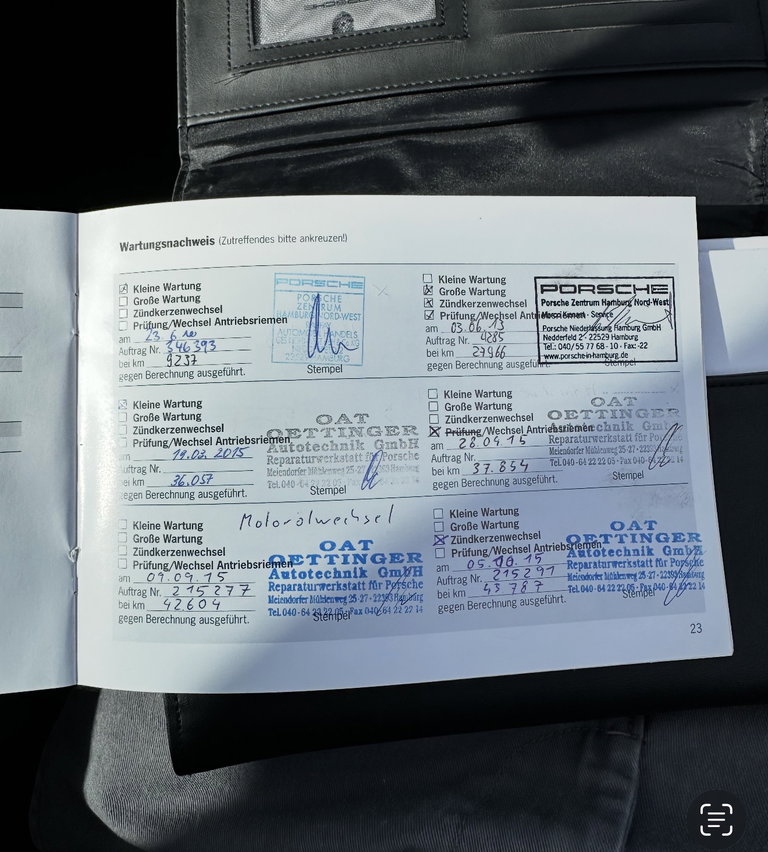 Wartungsnachweis (Zutreffendes bitte ankreuzen!)
Kleine Wartung
Große Wartung
Zündkerzenwechsel
Prüfung/Wechsel Antriebsriemen
am 23 6
Auftrag Nr. 346393
bei km 9237
gegen Berechnung ausgeführt.
PORSCHE
PORSCHE
ZENTRUM
HAMBURG NORD-WEST
Stempel
Kleine Wartung
Große Wartung
Zündkerzenwechsel
Prüfung/Wechsel Antriebsriemen
am 03.06.13
Auftrag Nr. 4285
bei km 27966
gegen Berechnung ausgeführt.
PORSCHE
Porsche Zentrum Hamburg Nord-West
Service
Porsche Niederlassung Hamburg GmbH
Nedderfeld 2 · 22529 Hamburg
Tel.: 040/55 77 68 - 10 · Fax: -22
www.porsche-in-hamburg.de
Stempel
Kleine Wartung
Große Wartung
Zündkerzenwechsel
Prüfung/Wechsel Antriebsriemen
am 19.03.2015
Auftrag Nr.
bei km 36.057
gegen Berechnung ausgeführt.
OAT
OETTINGER
Autotechnik GmbH
Reparaturwerkstatt für Porsche
Meiendorfer Mühlenweg 25-27 - 22393 Hamburg
Tel. 040 - 64 22 22 05 · Fax 040-64 22 22 14
Stempel
Kleine Wartung
Große Wartung
Zündkerzenwechsel
Prüfung/Wechsel Antriebsriemen
am 28.04.15
Auftrag Nr.
bei km 37.854
gegen Berechnung ausgeführt.
OAT
OETTINGER
Autotechnik GmbH
Reparaturwerkstatt für Porsche
Meiendorfer Mühlenweg 25-27 - 22393 Hamburg
Tel. 040 - 64 22 22 05 - Fax 040-64 22 22 14
Stempel
Kleine Wartung
Große Wartung
Zündkerzenwechsel
Prüfung/Wechsel Antriebsriemen
am 09.09.15
Auftrag Nr. 215277
bei km 42604
gegen Berechnung ausgeführt.
Motorölwechsel
OAT
OETTINGER
Autotechnik GmbH
Reparaturwerkstatt für Porsche
Meiendorfer Mühlenweg 25-27 - 22393 Hamburg
Tel. 040 - 64 22 22 05 - Fax 040-64 22 22 14
Stempel
Kleine Wartung
Große Wartung
Zündkerzenwechsel
Prüfung/Wechsel Antriebsriemen
am 05.10.15
Auftrag Nr. 215291
bei km 43787
gegen Berechnung ausgeführt.
OAT
OETTINGER
Autotechnik GmbH
Reparaturwerkstatt für Porsche
Meiendorfer Mühlenweg 25-27 - 22393 Hamburg
Tel. 040 - 64 22 22 05 - Fax 040-64 22 22 14
Stempel
23